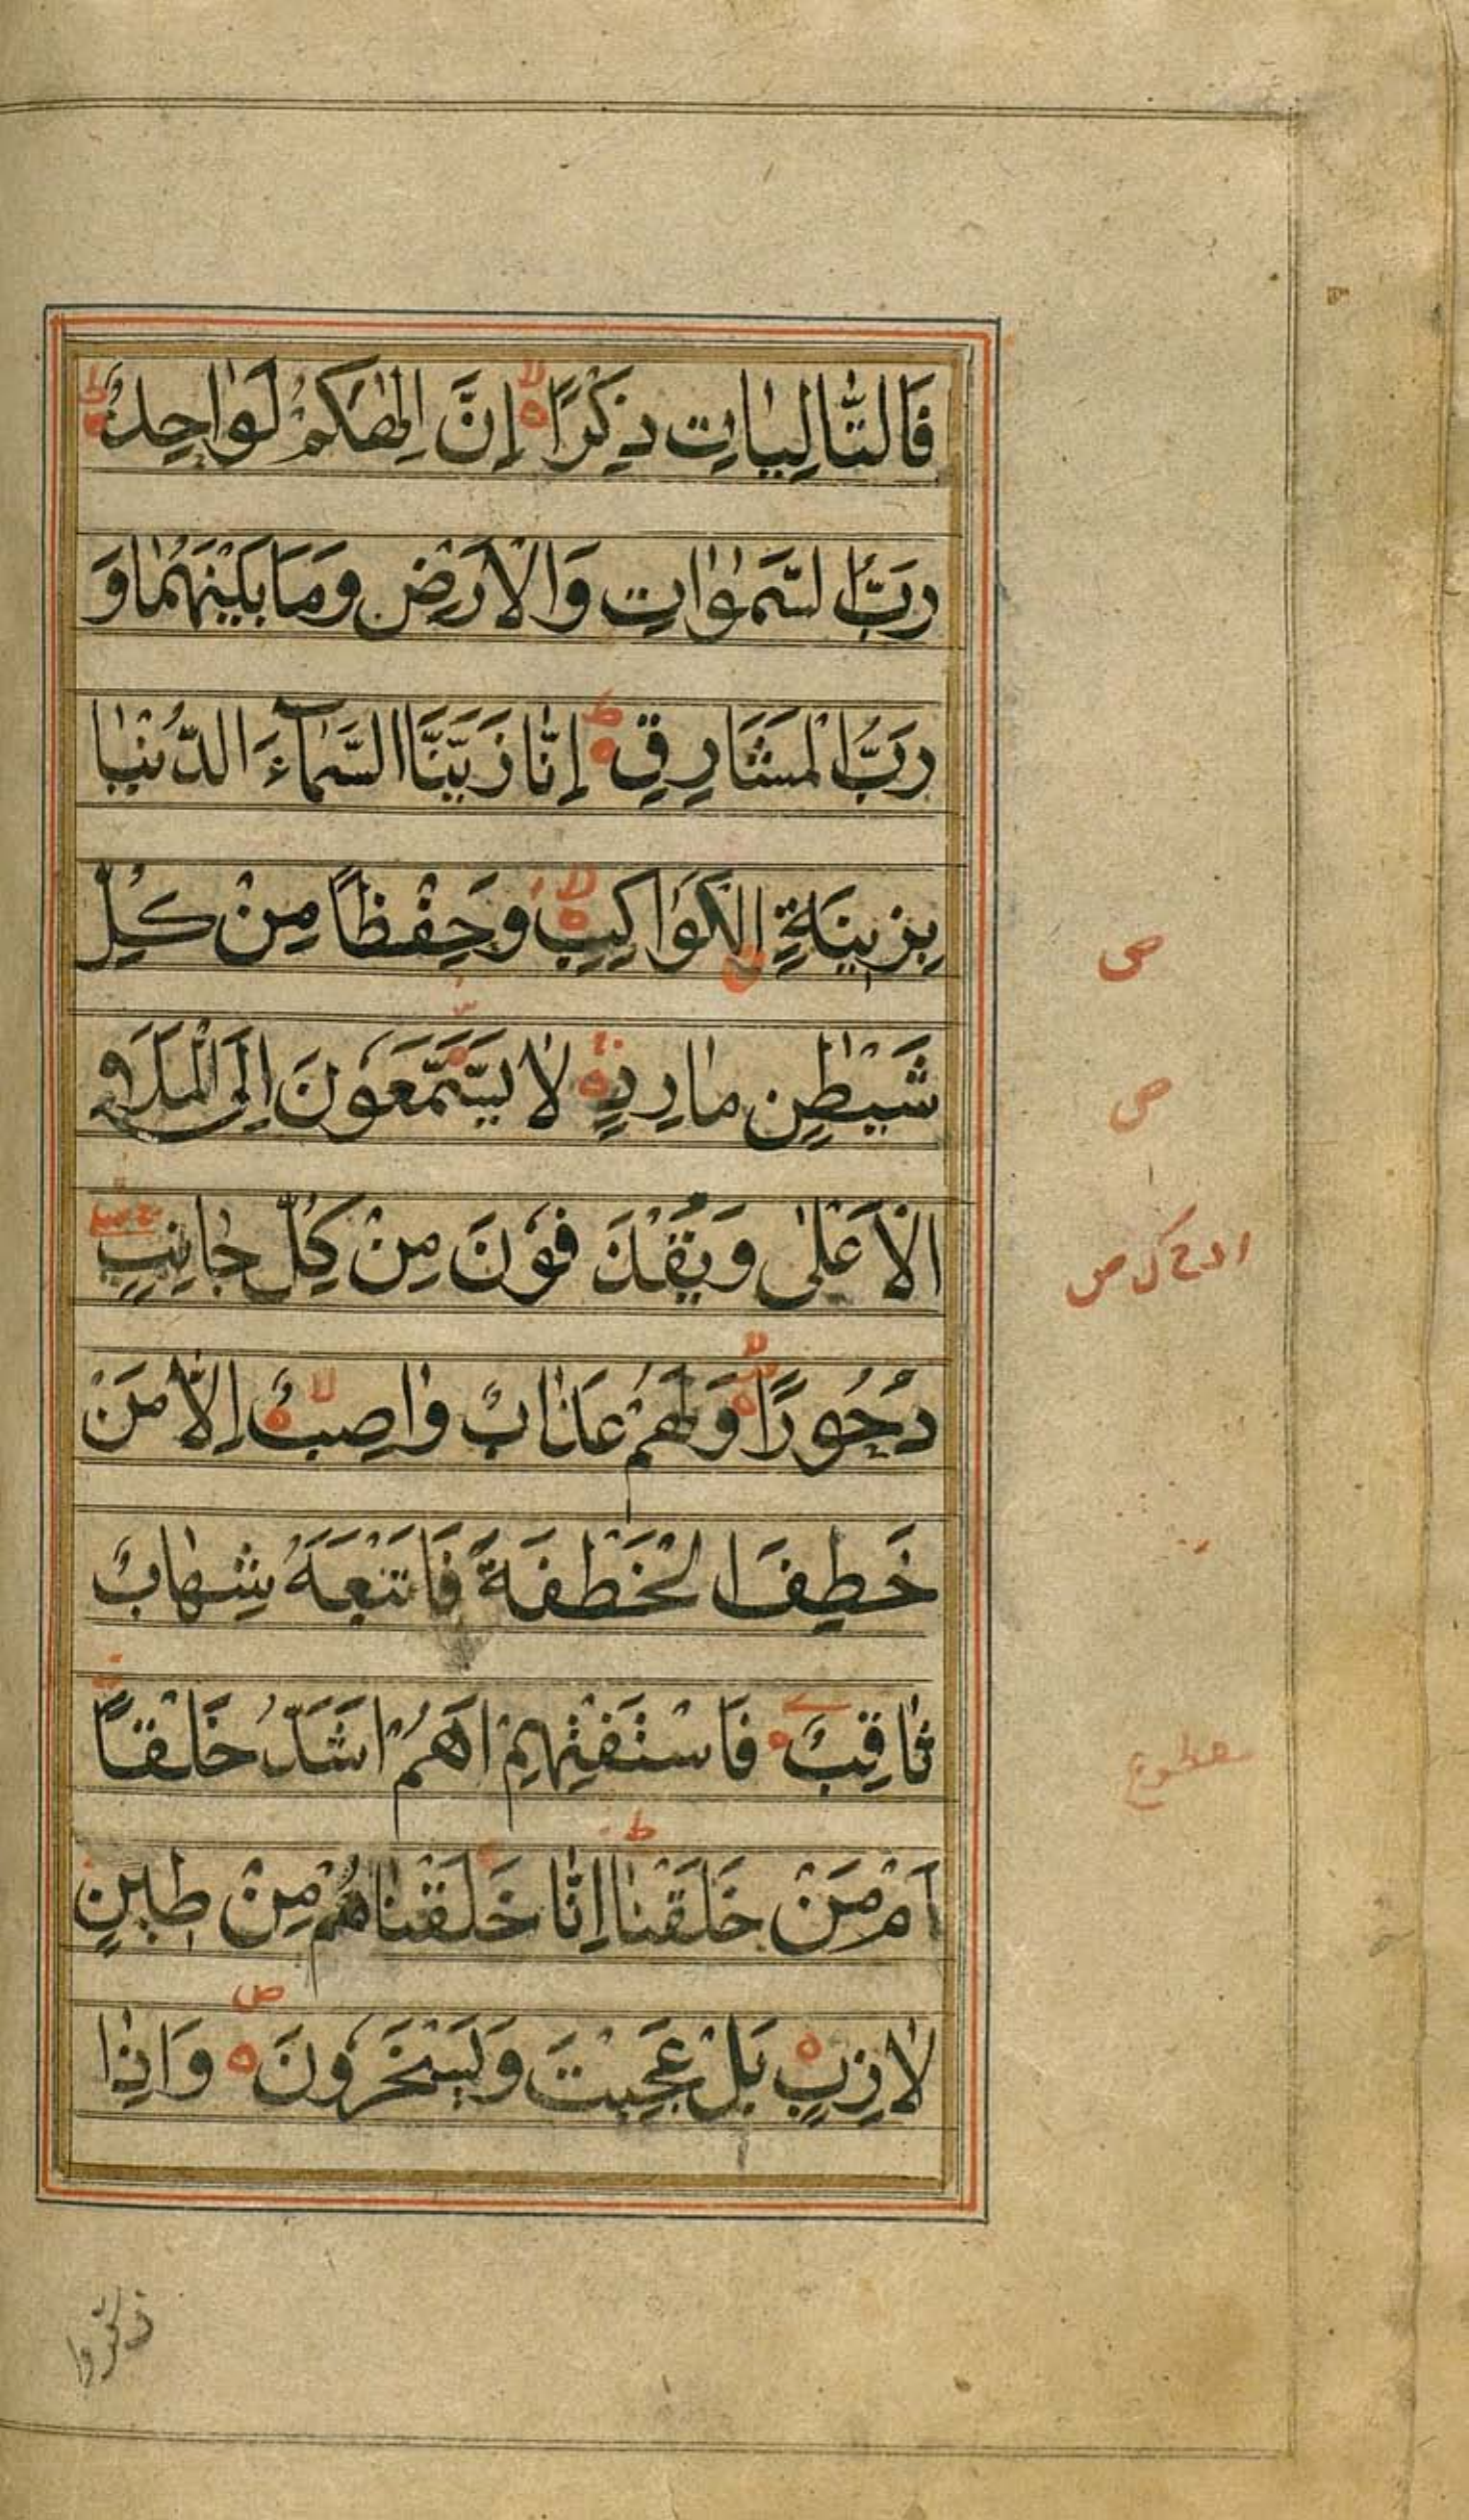 فَالتَّالِيَاتِ ذِكْرًا إِنَّ اِلٰهَكُمْ لَوَاحِدٌ
رَبُّ السَّمٰوَاتِ وَالْاَرْضِ وَمَا بَيْنَهُمَا وَ
رَبُّ الْمَشَارِقِ إِنَّا زَيَّنَّا السَّمَآءَ الدُّنْيَا
بِزِينَةِ الْكَوَاكِبِ وَحِفْظًا مِنْ كُلِّ
شَيْطٰنٍ مَارِدٍ لَا يَسَّمَّعُونَ اِلَى الْمَلَاِ
الْاَعْلٰى وَيُقْذَفُونَ مِنْ كُلِّ جَانِبٍ
دُحُورًا وَلَهُمْ عَذَابٌ وَاصِبٌ اِلَّا مَنْ
خَطِفَ الْخَطْفَةَ فَاَتْبَعَهُ شِهَابٌ
ثَاقِبٌ فَاسْتَفْتِهِمْ اَهُمْ اَشَدُّ خَلْقًا
اَمْ مَنْ خَلَقْنَا اِنَّا خَلَقْنَاهُمْ مِنْ طِينٍ
لَازِبٍ بَلْ عَجِبْتَ وَيَسْخَرُونَ وَاِذَا
ذكروا